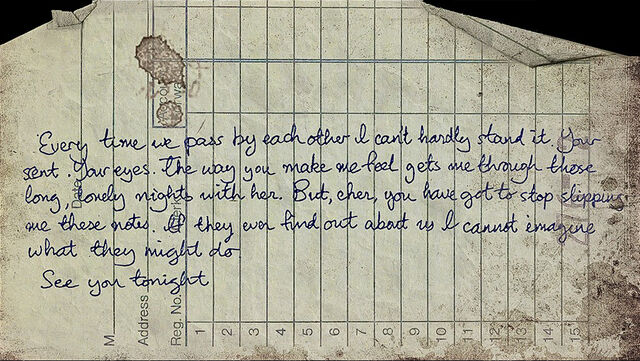 Every time we pass by each other I can't hardly stand it. Your
sent. Your eyes. The way you make me feel gets me through those
long, lonely nights with her. But, cher, you have got to stop slipping
me these notes. If they ever find out about us I cannot imagine
what they might do
See you tonight
M
Address
Reg. No.
1 2 3 4 5 6 7 8 9 10 11 12 13 14 15